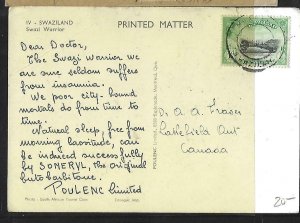 19 - SWAZILAND
Swazi Warrior
PRINTED MATTER
Dear Doctor,
The Swazi warrior we
are sure seldom suffers
from insomnia.
We poor city-bound
mortals do from time to
time.
Natural sleep, free from
morning lassitude, can
be induced successfully
by SONERYL, the original
butobarbitone.
POULENC Limited
D. A. A. Fraser
Lakefield Ont
Canada
20-